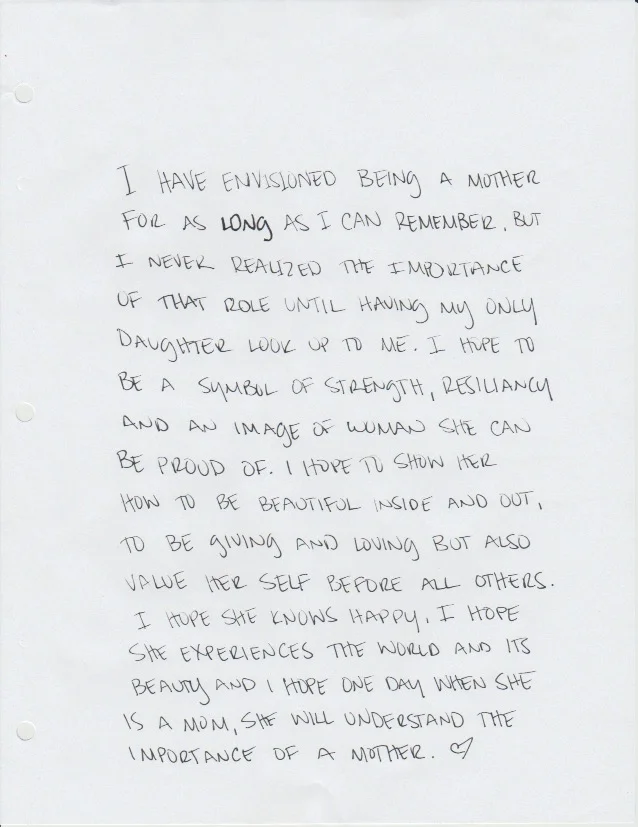 I HAVE ENVISIONED BEING A MOTHER
FOR AS LONG AS I CAN REMEMBER, BUT
I NEVER REALIZED THE IMPORTANCE
OF THAT ROLE UNTIL HAVING MY ONLY
DAUGHTER LOOK UP TO ME. I HOPE TO
BE A SYMBOL OF STRENGTH, RESILIANCY
AND AN IMAGE OF WOMAN SHE CAN
BE PROUD OF. I HOPE TO SHOW HER
HOW TO BE BEAUTIFUL INSIDE AND OUT,
TO BE GIVING AND LOVING BUT ALSO
VALUE HER SELF BEFORE ALL OTHERS.
I HOPE SHE KNOWS HAPPY, I HOPE
SHE EXPERIENCES THE WORLD AND ITS
BEAUTY AND I HOPE ONE DAY WHEN SHE
IS A MOM, SHE WILL UNDERSTAND THE
IMPORTANCE OF A MOTHER. ♡